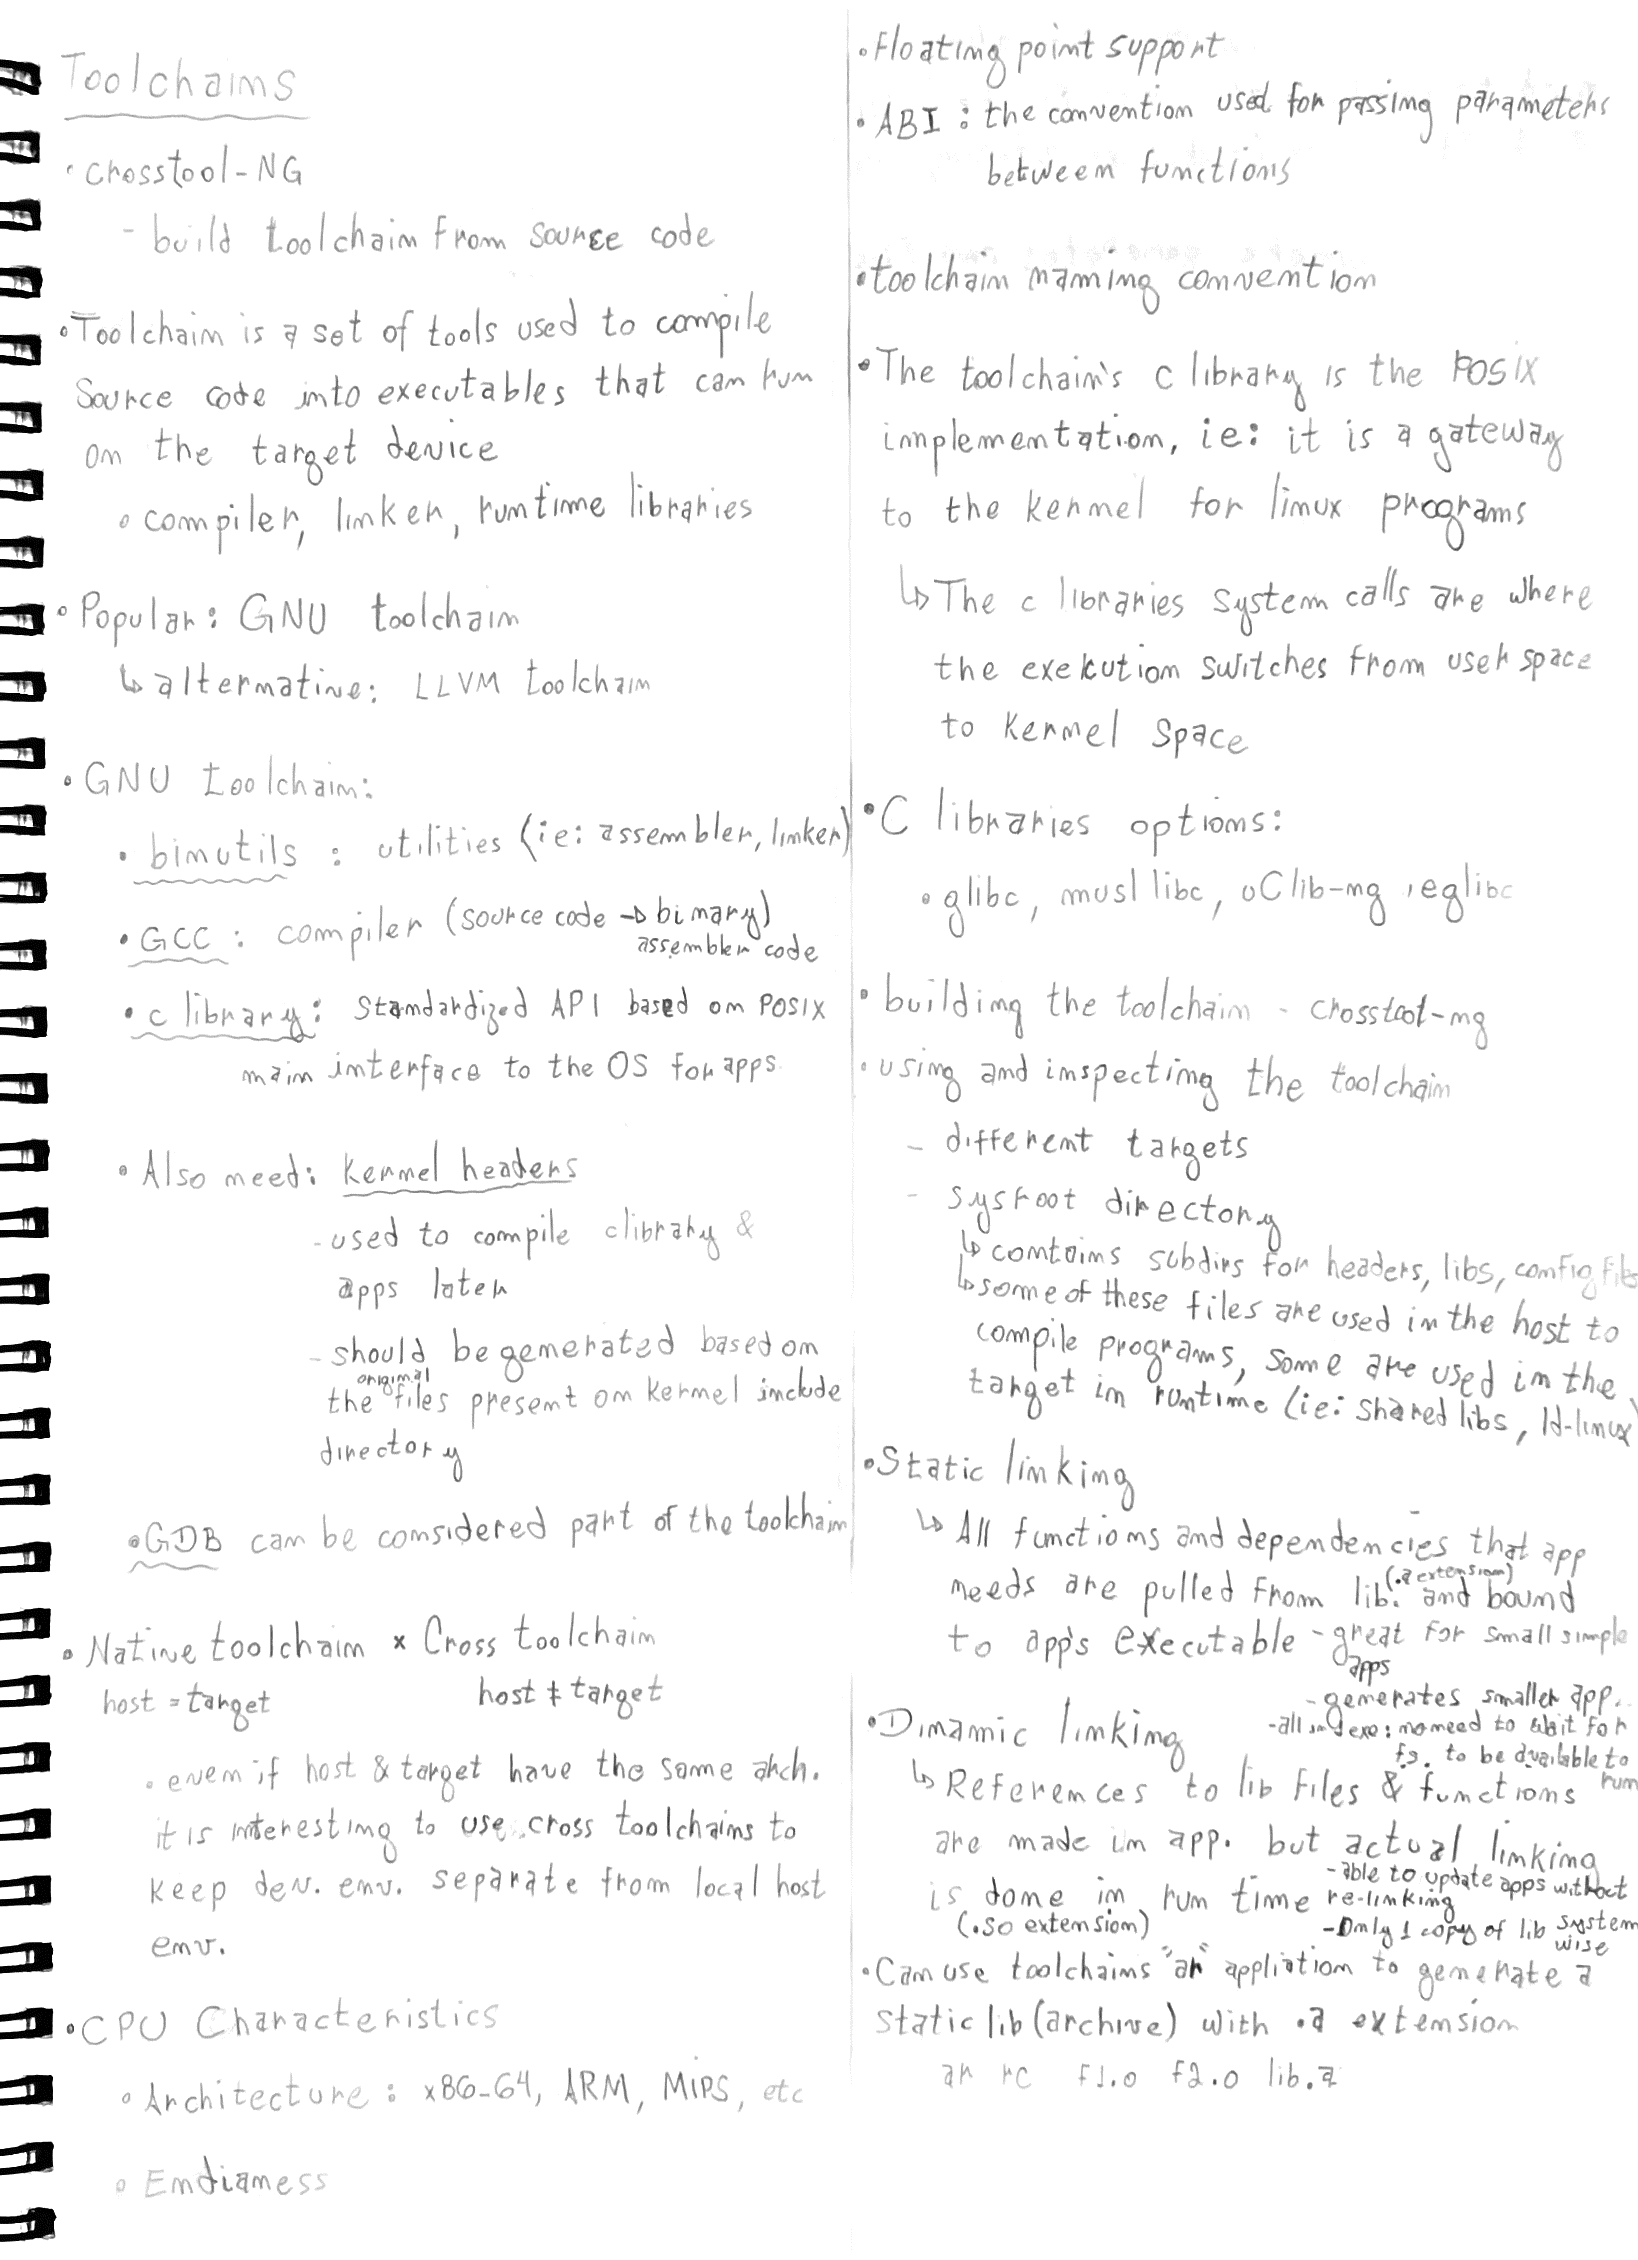 Toolchains
• crosstool-NG
- build toolchain from source code
• Toolchain is a set of tools used to compile
source code into executables that can run
on the target device
• compiler, linker, runtime libraries
• Popular: GNU toolchain
↳ alternative: LLVM toolchain
• GNU toolchain:
• binutils : utilities (ie: assembler, linker)
• GCC : compiler (source code → binary)
assembler code
• c library: Standardized API based on POSIX
main interface to the OS for apps.
• Also need: kernel headers
- used to compile clibrary &
apps later
- should be generated based on
original
the files present on kernel include
directory
• GDB can be considered part of the toolchain
• Native toolchain × Cross toolchain
host = target host ≠ target
• even if host & target have the same arch.
it is interesting to use cross toolchains to
keep dev. env. separate from local host
env.
• CPU Characteristics
• Architecture : x86-64, ARM, MIPS, etc
• Endianess
• Floating point support
• ABI : the convention used for passing parameters
between functions
• toolchain naming convention
• The toolchain's c library is the POSIX
implementation, ie: it is a gateway
to the kernel for linux programs
↳ The c libraries system calls are where
the execution switches from user space
to kernel space
• C libraries options:
• glibc, musl libc, uClib-ng, eglibc
• building the toolchain - crosstool-ng
• using and inspecting the toolchain
- different targets
- sysroot directory
↳ contains subdirs for headers, libs, config files
↳ some of these files are used in the host to
compile programs, some are used in the
target in runtime (ie: shared libs, ld-linux)
• Static linking
↳ All functions and dependencies that app
(.a extension)
needs are pulled from lib. and bound
to app's executable - great for small simple
apps
- generates smaller app.
- all in 1 exe: no need to wait for
fs. to be available to
run
• Dinamic linking
↳ References to lib files & functions
are made in app. but actual linking
is done in run time
(.so extension)
- able to update apps without
re-linking
- Only 1 copy of lib system
wise
• Can use toolchains "ar" appliation to generate a
static lib (archive) with .a extension
ar rc f1.o f2.o lib.a